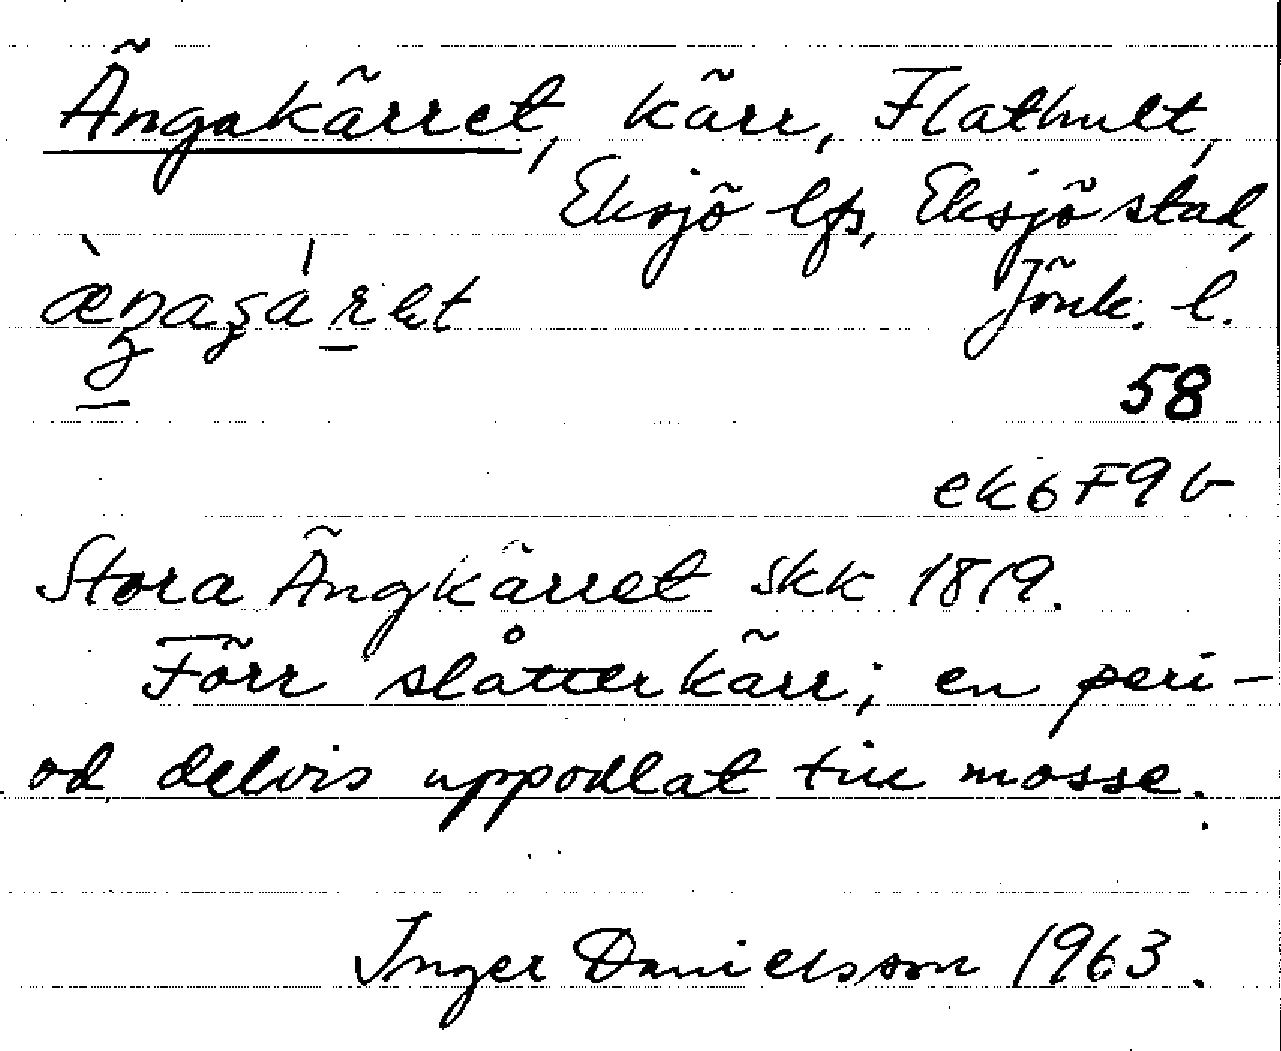 Ängakärret, kärr, Flathult,
Eksjö lfs, Eksjö stad,
Jönk. l.
58
ek 6 F 9 b
Stora Ängkärret skk 1819.
Förr slåtterkärr; en peri-
od delvis uppodlat till mosse.
Inger Danielsson 1963.